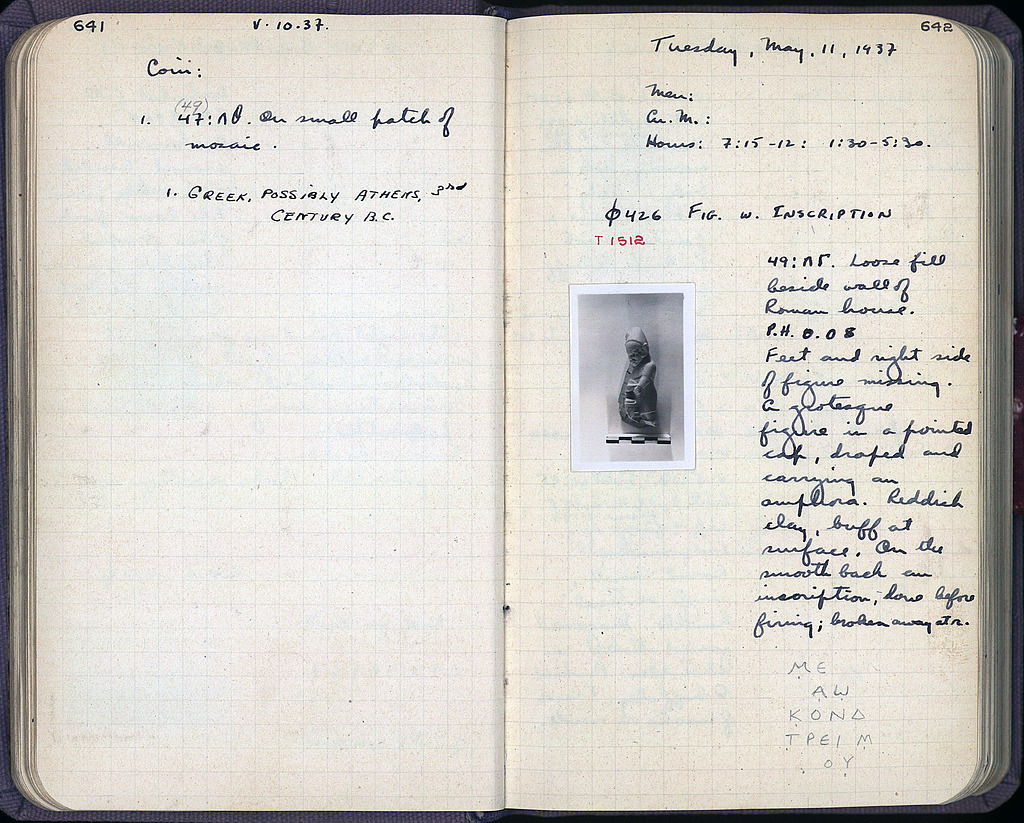 641
V·10·37.
Coin:
(49)
1. 47:ΛΘ. On small patch of
mosaic.
1. GREEK, POSSIBLY ATHENS, 3rd
CENTURY B.C.
642
Tuesday, May, 11, 1937
Men:
Ar. M.:
Hours: 7:15-12: 1:30-5:30.
φ426 FIG. W. INSCRIPTION
T 1512
49:ΛΓ. Loose fill
beside wall of
Roman house.
P.H. 0.08
Feet and right side
of figure missing.
A grotesque
figure in a pointed
cap, draped and
carrying an
amphora. Reddish
clay, buff at
surface. On the
smooth back an
inscription, done before
firing; broken away at r.
ΜΕ
ΑW
ΚΟΝΔ
ΤΡΕΙΜ
ΟΥ